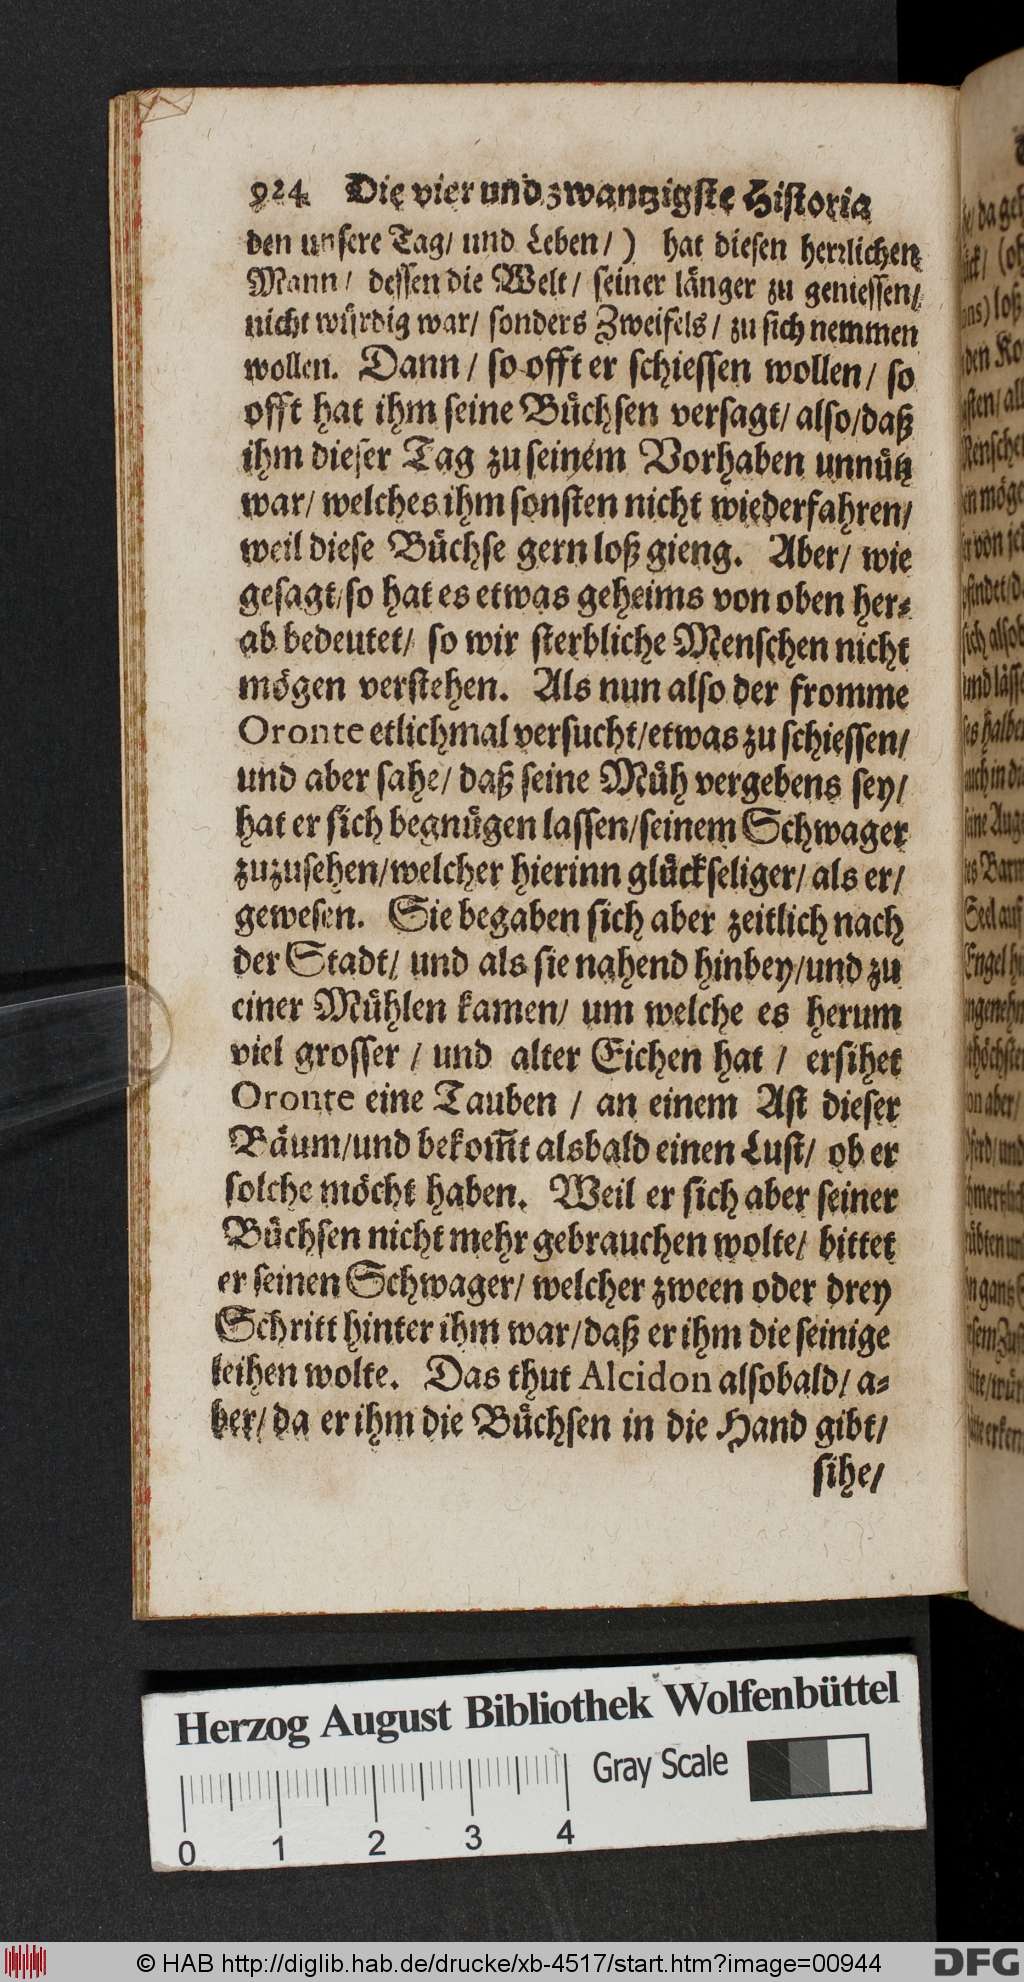 924 Die vier und zwantzigste Historia
den unsere Tag/ und Leben/) hat diesen herrlichen
Mann/ dessen die Welt/ seiner länger zu geniessen/
nicht würdig war/ sonders Zweifels/ zu sich nemmen
wollen. Dann/ so offt er schiessen wollen/ so
offt hat ihm seine Büchsen versagt/ also/daß
ihm dieser Tag zu seinem Vorhaben unnütz
war/ welches ihm sonsten nicht wiederfahren/
weil diese Büchse gern loß gieng. Aber/ wie
gesagt/so hat es etwas geheims von oben her-
ab bedeutet/ so wir sterbliche Menschen nicht
mögen verstehen. Als nun also der fromme
Oronte etlichmal versucht/etwas zu schiessen/
und aber sahe/ daß seine Müh vergebens sey/
hat er sich begnügen lassen/seinem Schwager
zuzusehen/welcher hierinn glückseliger/ als er/
gewesen. Sie begaben sich aber zeitlich nach
der Stadt/ und als sie nahend hinbey/und zu
einer Mühlen kamen/ um welche es herum
viel grosser / und alter Eichen hat / ersihet
Oronte eine Tauben / an einem Ast dieser
Bäum/und bekom̃t alsbald einen Lust/ ob er
solche möcht haben. Weil er sich aber seiner
Büchsen nicht mehr gebrauchen wolte/ bittet
er seinen Schwager/ welcher zween oder drey
Schritt hinter ihm war/daß er ihm die seinige
leihen wolte. Das thut Alcidon alsobald/ a-
ber/ da er ihm die Büchsen in die Hand gibt/
sihe/
Herzog August Bibliothek Wolfenbüttel
Gray Scale
0 1 2 3 4
© HAB http://diglib.hab.de/drucke/xb-4517/start.htm?image=00944
DFG